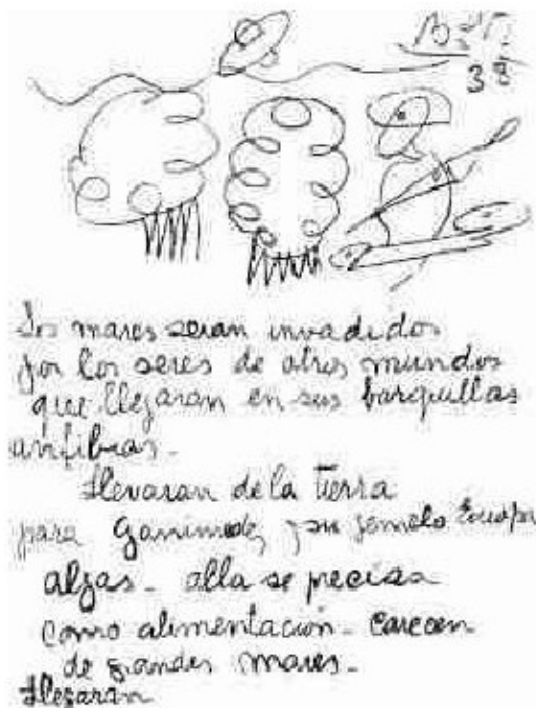 B.S.P.
3g.
Los mares seran invadidos
por los seres de otros mundos
que llegaran en sus barquillas
anfibias-
Llevaran de la tierra
para Ganimedes y su gemelo Europa
algas- alla se precisa
como alimentación- carecen
de grandes mares-
Llegaran